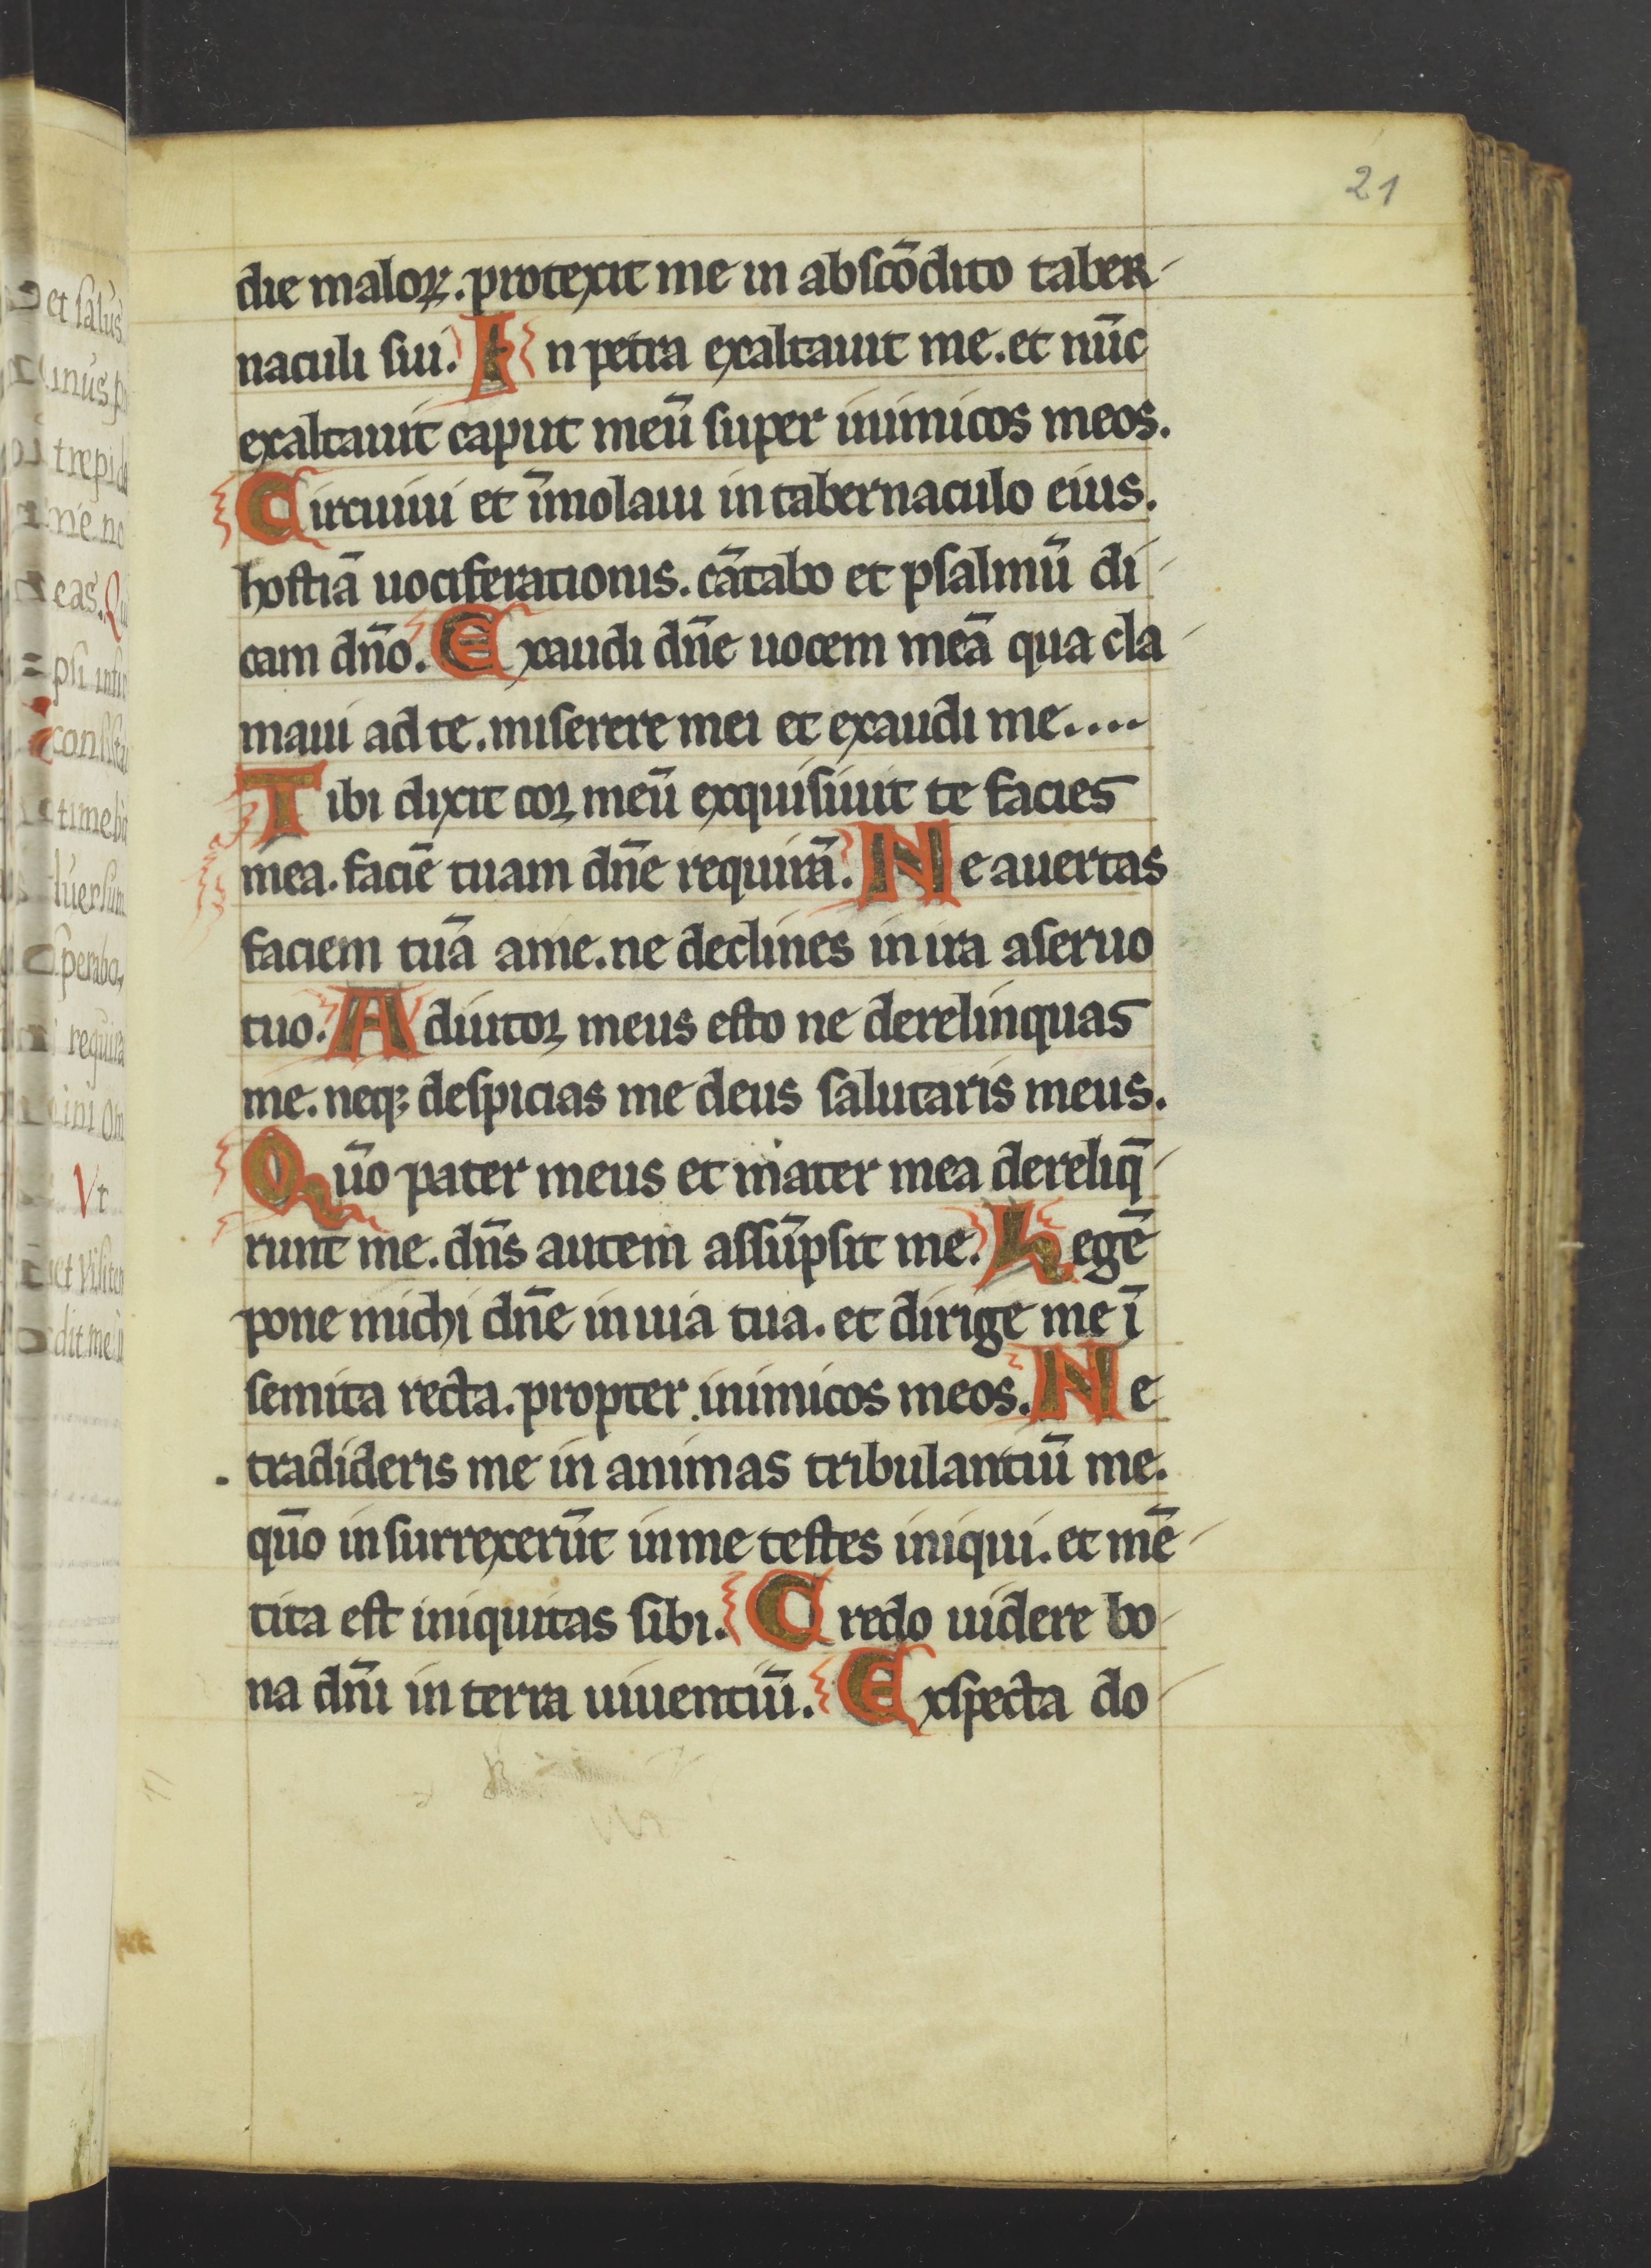 21
die maloꝝ. protexit me in abscōdito taber-
naculi sui. In petra exaltauit me. et nūc
exaltauit caput meū super inimicos meos.
Circuiui et īmolaui in tabernaculo eius.
hostiā uociferationis. cātabo et psalmū di-
cam dn̄o. Exaudi dn̄e uocem meā qua cla-
maui ad te. miserere mei et exaudi me....
Tibi dixit cor meū exquisiuit te facies
mea. faciē tuam dn̄e requirā. Ne auertas
faciem tuā a me. ne declines in ira a seruo
tuo. Adiutor meus esto ne derelinquas
me. neqꝫ despicias me deus salutaris meus.
Qūo pater meus et mater mea dereliq̄-
runt me. dn̄s autem assūpsit me. Legē
pone michi dn̄e in uia tua. et dirige me ī
semita recta. propter inimicos meos. Ne
tradideris me in animas tribulantiū me.
qūo insurrexerūt in me testes iniqui. et mē-
tita est iniquitas sibi. Credo uidere bo-
na dn̄i in terra uiuentiū. Exspecta do-